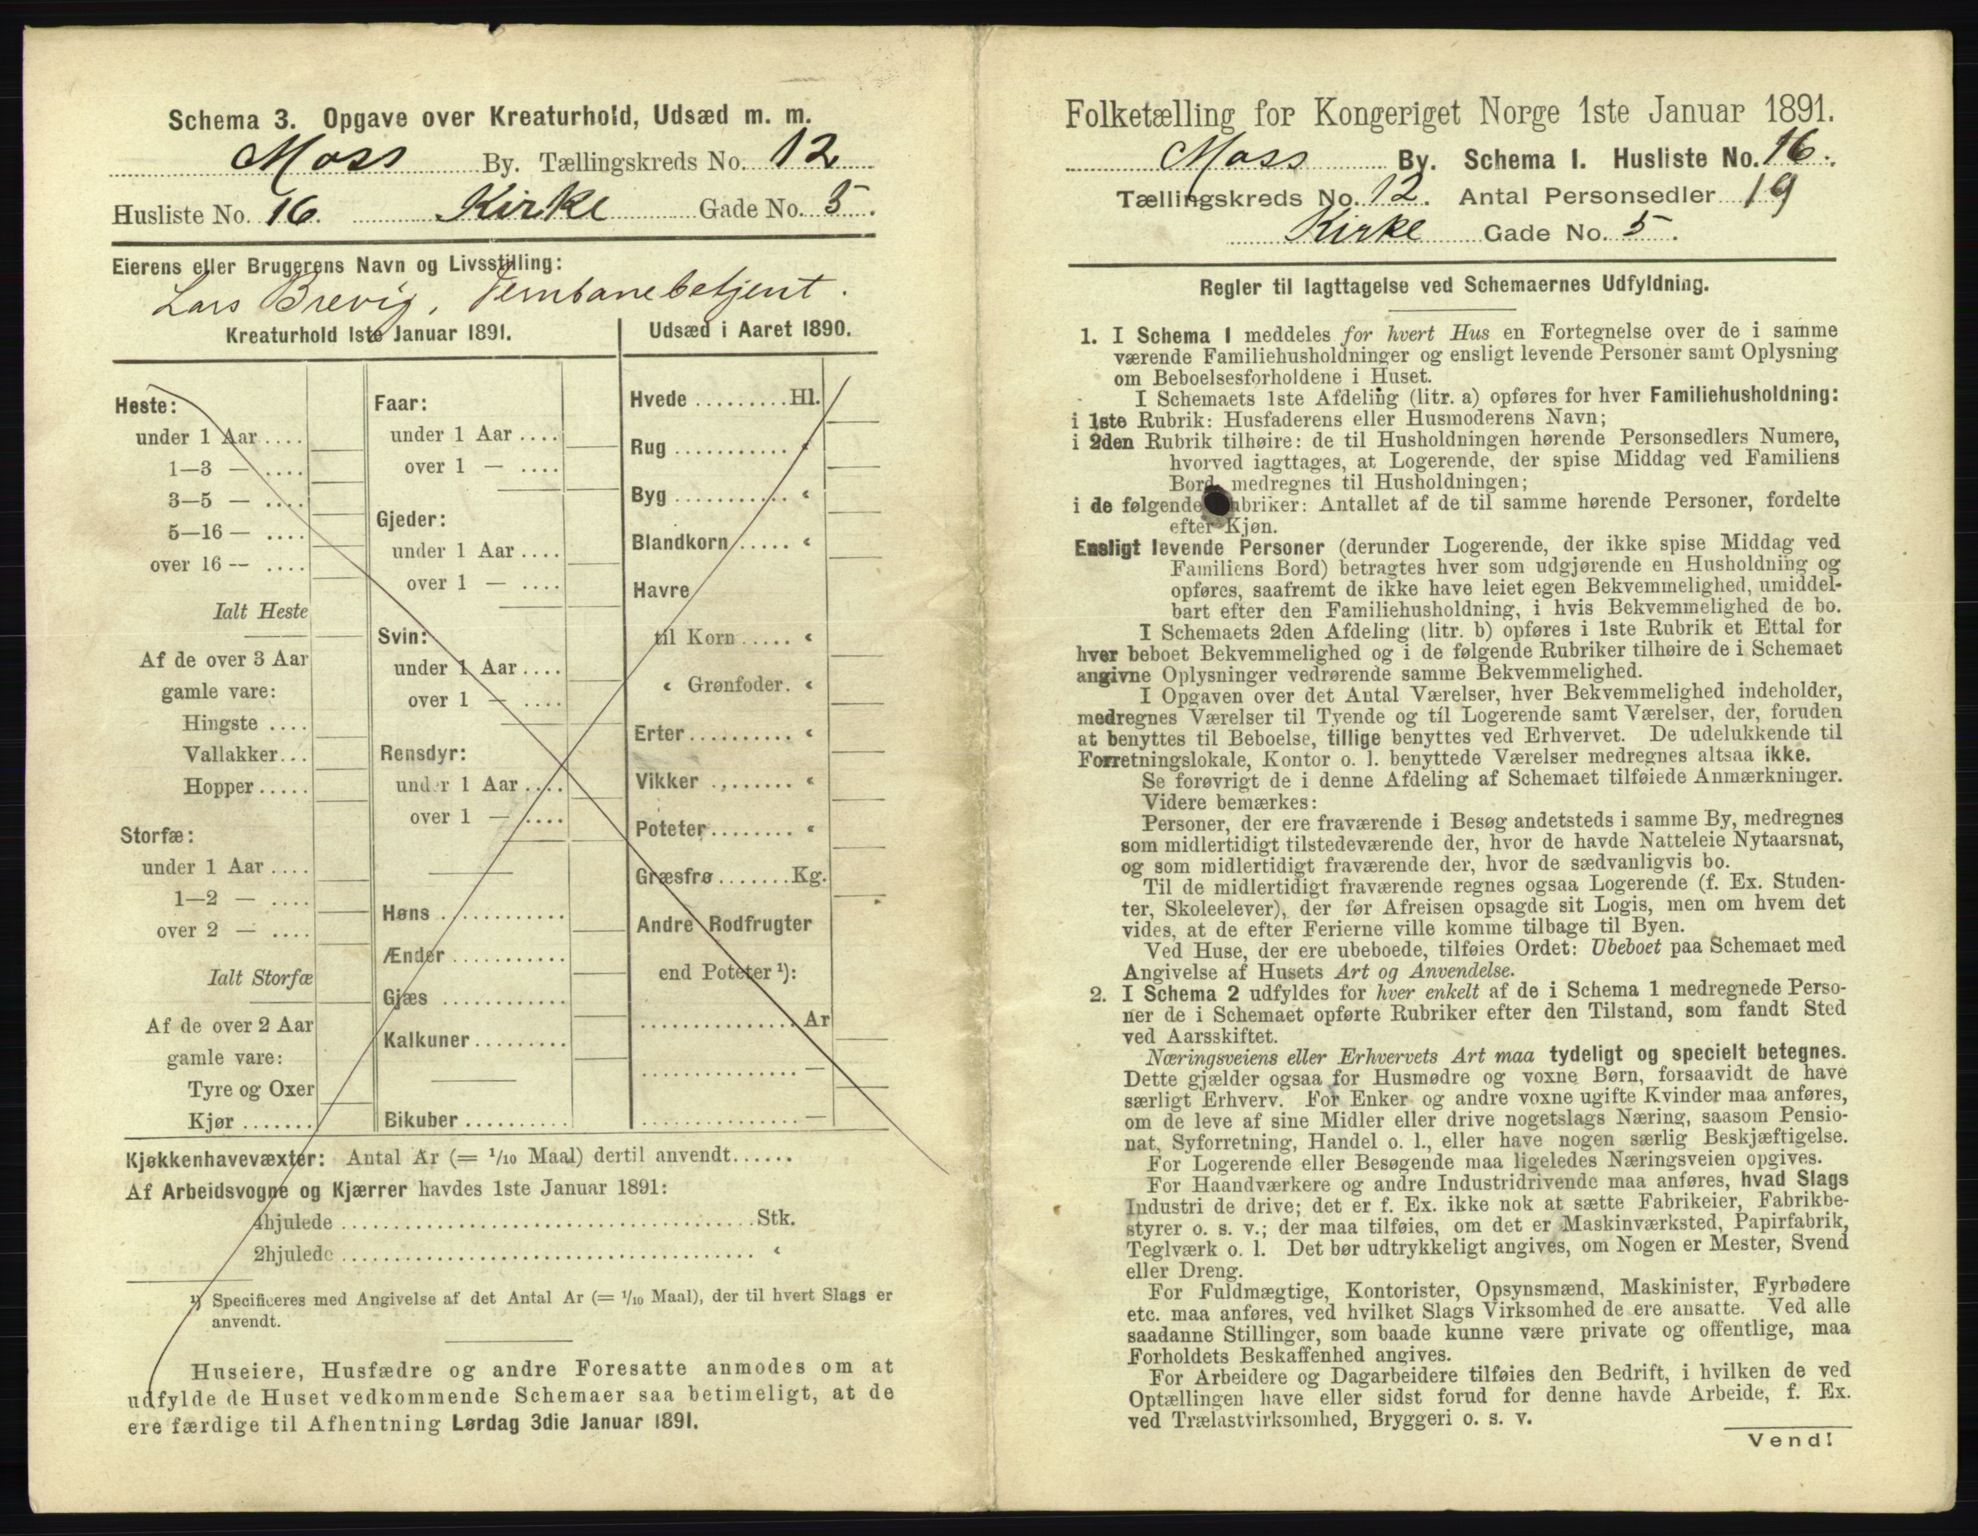 Schema 3. Opgave over Kreaturhold, Udsæd m. m.
Moss By. Tællingskreds No. 12
Husliste No. 16. Kirke Gade No. 5.
Eierens eller Brugerens Navn og Livsstilling:
Lars Brevig, Jernbanebetjent.
Kreaturhold 1ste Januar 1891.
Heste:
under 1 Aar ....
1—3 — ....
3—5 — ....
5—16 — ....
over 16 — ....
Ialt Heste
Af de over 3 Aar
gamle vare:
Hingste ....
Vallakker...
Hopper.....
Storfæ:
under 1 Aar ....
1—2 — ....
over 2 — ....
Ialt Storfæ
Af de over 2 Aar
gamle vare:
Tyre og Oxer
Kjør .......
Faar:
under 1 Aar ....
over 1 — ....
Gjeder:
under 1 Aar ....
over 1 — ....
Svin:
under 1 Aar ....
over 1 — ....
Rensdyr:
under 1 Aar ....
over 1 — ....
Høns ...........
Ænder ...........
Gjæs ...........
Kalkuner.........
Bikuber ..........
Udsæd i Aaret 1890.
Hvede .........Hl.
Rug ........... "
Byg ........... "
Blandkorn ..... "
Havre
til Korn ..... "
" Grønfoder. "
Erter.......... "
Vikker ........ "
Poteter........ "
Græsfrø .......Kg.
Andre Rodfrugter
end Poteter ¹):
...............Ar
............... —
............... —
Kjøkkenhavevæxter: Antal Ar (= 1/10 Maal) dertil anvendt......
Af Arbeidsvogne og Kjærrer havdes 1ste Januar 1891:
4hjulede ........................................Stk.
2hjulede ........................................ "
¹) Specificeres med Angivelse af det Antal Ar (= 1/10 Maal), der til hvert Slags er
anvendt.
Huseiere, Husfædre og andre Foresatte anmodes om at
udfylde de Huset vedkommende Schemaer saa betimeligt, at de
ere færdige til Afhentning Lørdag 3die Januar 1891.
Folketælling for Kongeriget Norge 1ste Januar 1891.
Moss By. Schema 1. Husliste No. 16.
Tællingskreds No. 12. Antal Personsedler 19
Kirke Gade No. 5.
Regler til Iagttagelse ved Schemaernes Udfyldning.
1. I Schema 1 meddeles for hvert Hus en Fortegnelse over de i samme
værende Familiehusholdninger og ensligt levende Personer samt Oplysning
om Beboelsesforholdene i Huset.
I Schemaets 1ste Afdeling (litr. a) opføres for hver Familiehusholdning:
i 1ste Rubrik: Husfaderens eller Husmoderens Navn;
i 2den Rubrik tilhøire: de til Husholdningen hørende Personsedlers Numere,
hvorved iagttages, at Logerende, der spise Middag ved Familiens
Bord, medregnes til Husholdningen;
i de følgende Rubriker: Antallet af de til samme hørende Personer, fordelte
efter Kjøn.
Ensligt levende Personer (derunder Logerende, der ikke spise Middag ved
Familiens Bord) betragtes hver som udgjørende en Husholdning og
opføres, saafremt de ikke have leiet egen Bekvemmelighed, umiddel-
bart efter den Familiehusholdning, i hvis Bekvemmelighed de bo.
I Schemaets 2den Afdeling (litr. b) opføres i 1ste Rubrik et Ettal for
hver beboet Bekvemmelighed og i de følgende Rubriker tilhøire de i Schemaet
angivne Oplysninger vedrørende samme Bekvemmelighed.
I Opgaven over det Antal Værelser, hver Bekvemmelighed indeholder,
medregnes Værelser til Tyende og til Logerende samt Værelser, der, foruden
at benyttes til Beboelse, tillige benyttes ved Erhvervet. De udelukkende til
Forretningslokale, Kontor o. l. benyttede Værelser medregnes altsaa ikke.
Se forøvrigt de i denne Afdeling af Schemaet tilføiede Anmærkninger.
Videre bemærkes:
Personer, der ere fraværende i Besøg andetsteds i samme By, medregnes
som midlertidigt tilstedeværende der, hvor de havde Natteleie Nytaarsnat,
og som midlertidigt fraværende der, hvor de sædvanligvis bo.
Til de midlertidigt fraværende regnes ogsaa Logerende (f. Ex. Studen-
ter, Skoleelever), der før Afreisen opsagde sit Logis, men om hvem det
vides, at de efter Ferierne ville komme tilbage til Byen.
Ved Huse, der ere ubeboede, tilføies Ordet: Ubeboet paa Schemaet med
Angivelse af Husets Art og Anvendelse.
2. I Schema 2 udfyldes for hver enkelt af de i Schema 1 medregnede Perso-
ner de i Schemaet opførte Rubriker efter den Tilstand, som fandt Sted
ved Aarsskiftet.
Næringsveiens eller Erhvervets Art maa tydeligt og specielt betegnes.
Dette gjælder ogsaa for Husmødre og voxne Børn, forsaavidt de have
særligt Erhverv. For Enker og andre voxne ugifte Kvinder maa anføres,
om de leve af sine Midler eller drive nogetslags Næring, saasom Pensio-
nat, Syforretning, Handel o. l., eller have nogen særlig Beskjæftigelse.
For Logerende eller Besøgende maa ligeledes Næringsveien opgives.
For Haandværkere og andre Industridrivende maa anføres, hvad Slags
Industri de drive; det er f. Ex. ikke nok at sætte Fabrikeier, Fabrikbe-
styrer o. s. v.; der maa tilføies, om det er Maskinværksted, Papirfabrik,
Teglværk o. l. Det bør udtrykkeligt angives, om Nogen er Mester, Svend
eller Dreng.
For Fuldmægtige, Kontorister, Opsynsmænd, Maskinister, Fyrbødere
etc. maa anføres, ved hvilket Slags Virksomhed de ere ansatte. Ved alle
saadanne Stillinger, som baade kunne være private og offentlige, maa
Forholdets Beskaffenhed angives.
For Arbeidere og Dagarbeidere tilføies den Bedrift, i hvilken de ved
Optællingen have eller sidst forud for denne havde Arbeide, f. Ex.
ved Trælastvirksomhed, Bryggeri o. s. v.
Vend!